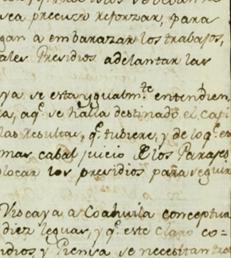 sea preciso reforzar, para
gan a embarazar los trabajos,
ales Presidios adelantar las
ya se esta ygualm.te entendien
a, aq.e se halla destinado el Capi
las resultas, q.e tubiere, y de lo q.e es
mar cabal juicio de los Parajes
locar los presidios para seguir
Vizcaya a Coahuila conceptua
diez leguas, y q.e este claro co=
dios y Prensa se necesitan tro